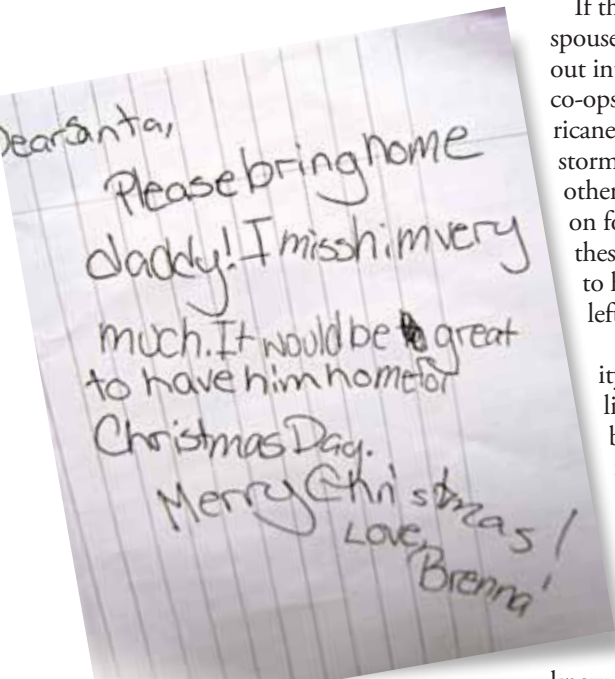 Dear Santa,
Please bring home
daddy! I miss him very
much. It would be great
to have him home for
Christmas Day.
Merry Christmas!
Love,
Brenna
If th
spouse
out in
co-ops
ricane
storm
other
on fo
these
to h
left
ity
li
b
know